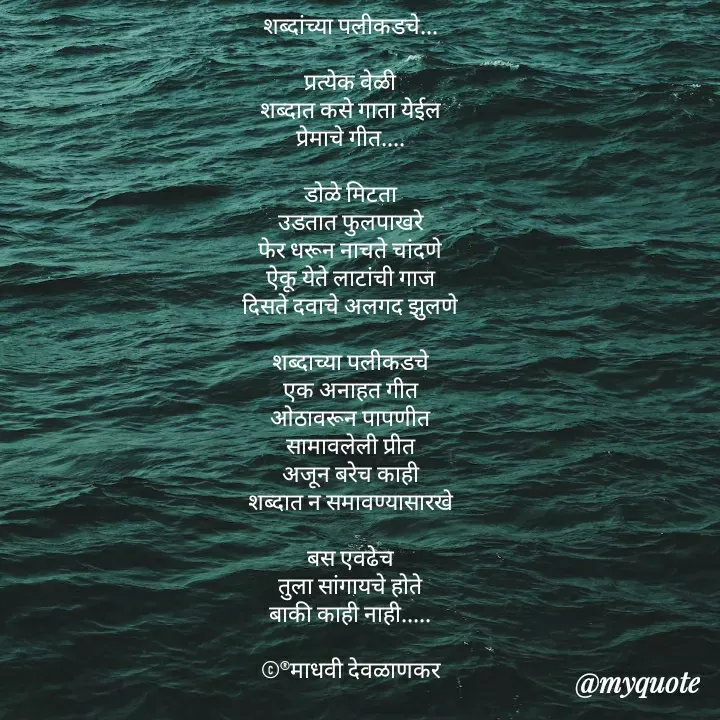 शब्दांच्या पलीकडचे...
प्रत्येक वेळी
शब्दात कसे गाता येईल
प्रेमाचे गीत....
डोळे मिटता
उडतात फुलपाखरे
फेर धरून नाचते चांदणे
ऐकू येते लाटांची गाज
दिसते दवाचे अलगद झुलणे
शब्दाच्या पलीकडचे
एक अनाहत गीत
ओठावरून पापणीत
सामावलेली प्रीत
अजून बरेच काही
शब्दात न समावण्यासारखे
बस एवढेच
तुला सांगायचे होते
बाकी काही नाही.....
©®माधवी देवळाणकर
@myquote